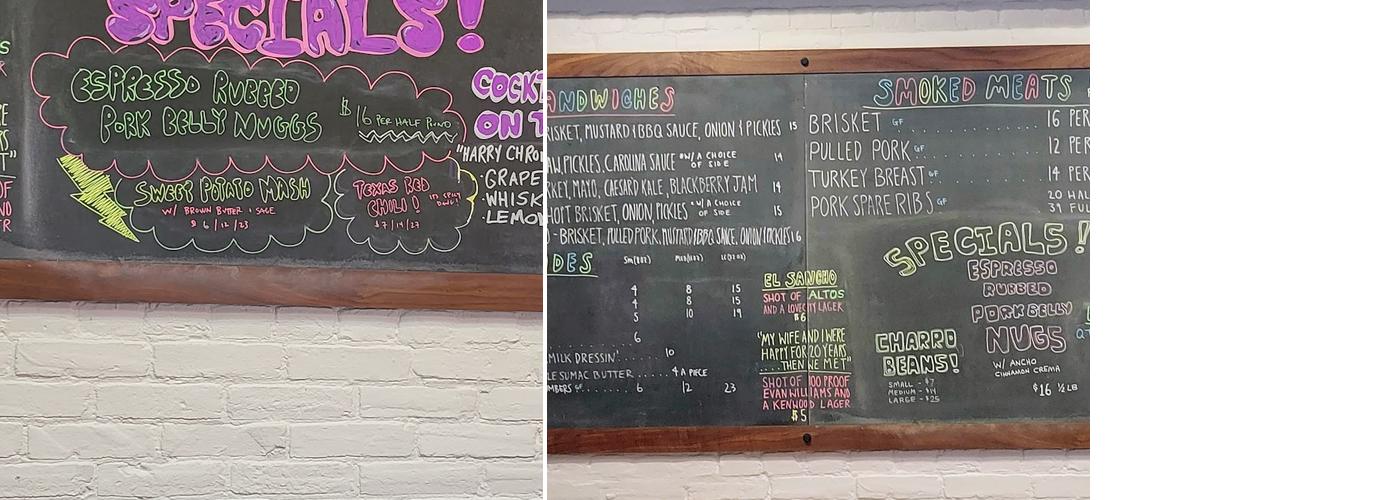 SPECIALS!
ESPRESSO RUBBED
PORK BELLY NUGGS
$16 PER HALF POUND
SWEET POTATO MASH
W/ BROWN BUTTER & SAGE
$6/12/23
TEXAS RED
CHILI!
IT'S SPICY
$7/14/27
COCKT
ON T
"HARRY CHRON
GRAPE
·WHISK
·LEMON
ANDWICHES
RISKET, MUSTARD & BBQ SAUCE, ONION & PICKLES 15
AW, PICKLES, CAROLINA SAUCE *W/A CHOICE OF SIDE 14
KEY, MAYO, CAESARD KALE, BLACKBERRY JAM 14
HOPT BRISKET, ONION, PICKLES *W/A CHOICE OF SIDE 15
- BRISKET, PULLED PORK, MUSTARD & BBQ SAUCE, ONION & PICKLES 16
DES
4 8 15
4 8 15
5 10 19
6
MILK DRESSIN'. 10
LE SUMAC BUTTER ..... 4 A PIECE
MBERS GF ........ 6 12 23
EL SANCHO
SHOT OF ALTOS
AND A LOVE CITY LAGER
$6
"MY WIFE AND I WERE
HAPPY FOR 20 YEARS
....THEN WE MET"
SHOT OF 100 PROOF
EVAN WILLIAMS AND
A KENWOOD LAGER
$5
SMOKED MEATS
BRISKET GF 16 PER
PULLED PORK GF 12 PER
TURKEY BREAST GF 14 PER
PORK SPARE RIBS GF 20 HAL
39 FUL
SPECIALS!
ESPRESSO
RUBBED
PORK BELLY
NUGS
W/ ANCHO
CINNAMON CREMA
$16 ½ LB
CHARRO
BEANS!
SMALL - $7
MEDIUM - $14
LARGE - $25